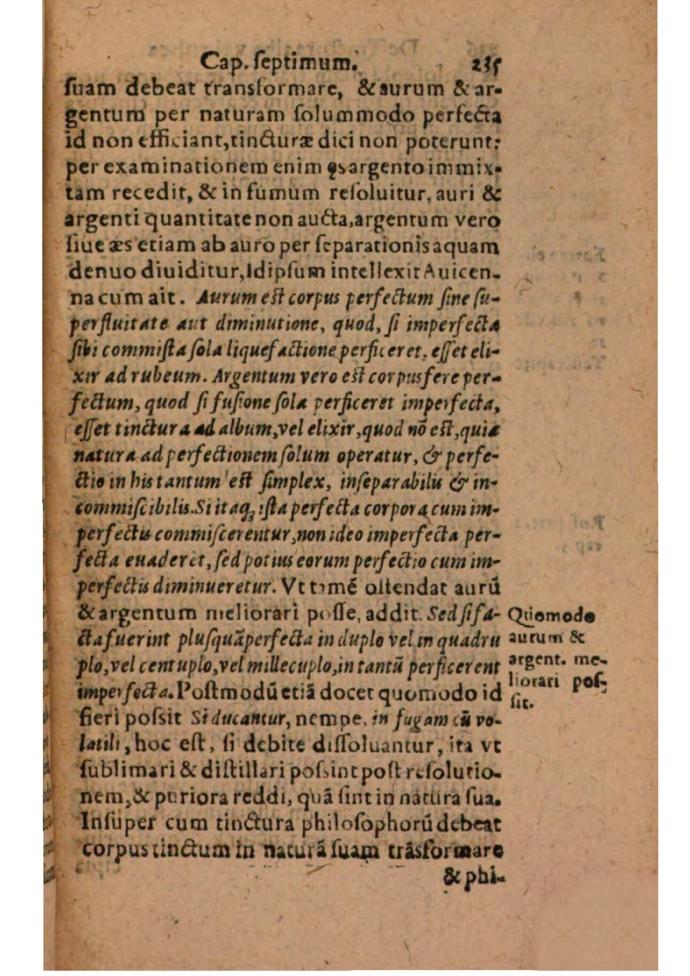 Cap. ſeptimum. 235
ſuam debeat transformare, & aurum & ar-
gentum per naturam ſolummodo perfecta
id non efficiant, tincturæ dici non poterunt:
per examinationem enim æs argento immix-
tam recedit, & in fumum reſoluitur, auri &
argenti quantitate non aucta, argentum vero
ſiue æs etiam ab auro per ſeparationis aquam
denuo diuiditur, Idipſum intellexit Auicen-
na cum ait. Aurum eſt corpus perfectum ſine ſu-
perfluitate aut diminutione, quod, ſi imperfecta
ſibi commiſta ſola liquefactione perficeret, eſſet eli-
xir ad rubeum. Argentum vero eſt corpus fere per-
fectum, quod ſi fuſione ſola perficeret imperfecta,
eſſet tinctura ad album, vel elixir, quod nõ eſt, quia
natura ad perfectionem ſolum operatur, & perfe-
ctio in his tantum eſt ſimplex, inſeparabilis & in-
commiſcibilis. Si itaq; iſta perfecta corpora cum im-
perfectis commiſcerentur, non ideo imperfecta per-
fecta euaderet, ſed potius eorum perfectio cum im-
perfectis diminueretur. Vt tamẽ oſtendat aurũ
& argentum meliorari poſſe, addit. Sed ſi fa-
cta fuerint pluſquã perfecta in duplo vel in quadru
plo, vel centuplo, vel millecuplo, in tantũ perficerent
imperfecta. Poſtmodũ etiã docet quomodo id
fieri poſsit Si ducantur, nempe, in fugam cũ vo-
latili, hoc eſt, ſi debite diſſoluantur, ita vt
ſublimari & diſtillari poſsint poſt reſolutio-
nem, & puriora reddi, quã ſint in natura ſua.
Inſuper cum tinctura philoſophorũ debeat
corpus tinctum in naturã ſuam trãsformare
& phi-
Quomodo
aurum &
argent. me-
liorari poſ-
ſit.